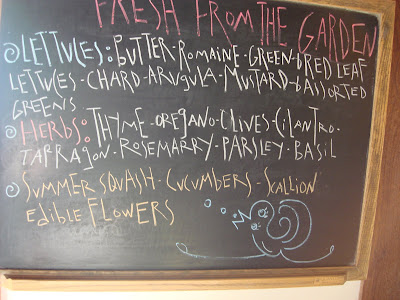 FRESH FROM THE GARDEN
LETTUCES: BUTTER - ROMAINE - GREEN & RED LEAF
LETTUCES - CHARD - ARUGULA - MUSTARD - & ASSORTED
GREENS
HERBS: THYME - OREGANO - CHIVES - CILANTRO -
TARRAGON - ROSEMARRY - PARSLEY - BASIL
SUMMER SQUASH - CUCUMBERS - SCALLION
EDIBLE FLOWERS